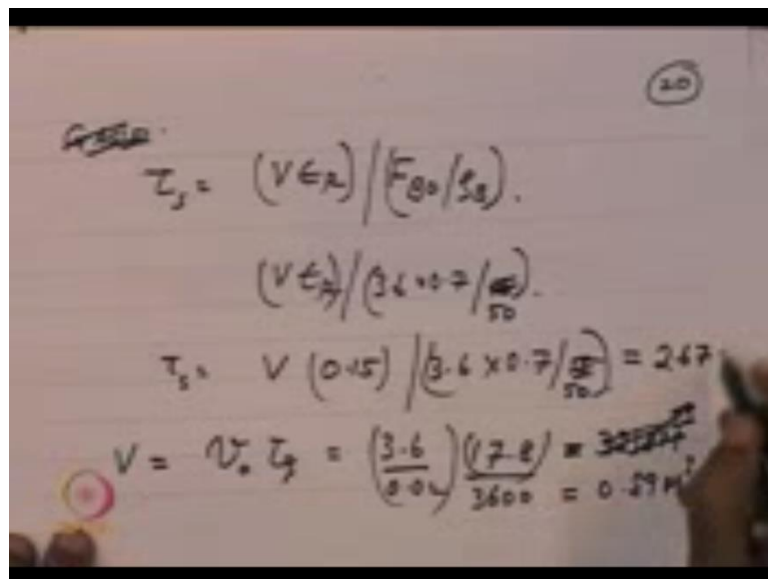 20
τₛ = (V ∈ₐ) / (F_B0 / ρ_B).
(V ∈) / (3.6 × 0.7 / 50).
τₛ = V (0.15) / (3.6 × 0.7 / 50) = 2.67
V = v₀ τ = (3.6 / 0.02) (17.8) / 3600 = 0.89 m³